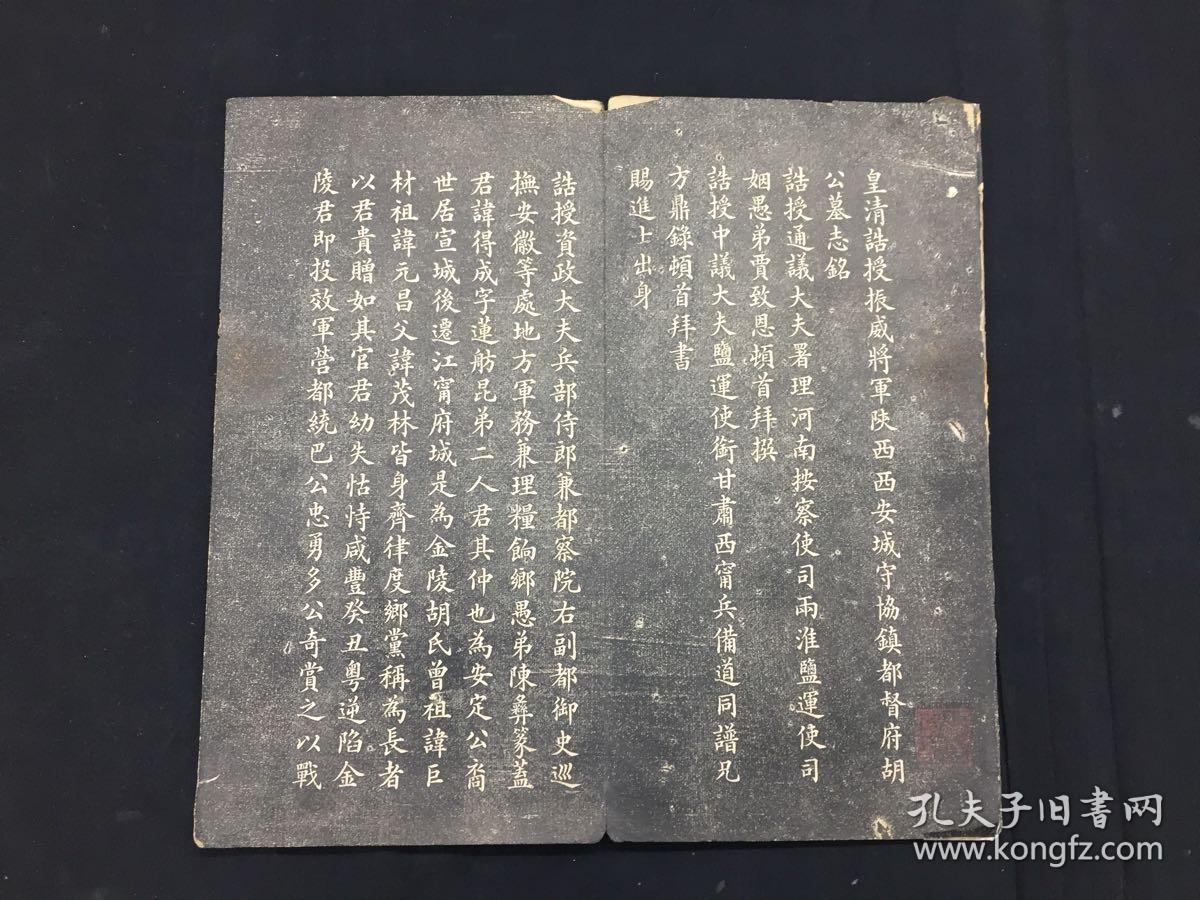 皇清誥授振威將軍陝西西安城守協鎮都督府胡
公墓志銘
誥授通議大夫署理河南按察使司兩淮鹽運使司
姻愚弟賈致恩頓首拜撰
誥授中議大夫鹽運使銜甘肅西甯兵備道同譜兄
方鼎錄頓首拜書
賜進士出身
誥授資政大夫兵部侍郎兼都察院右副都御史巡
撫安徽等處地方軍務兼理糧餉鄉愚弟陳彝篆蓋
君諱得成字蓮舫昆弟二人君其仲也為安定公裔
世居宣城後遷江甯府城是為金陵胡氏曾祖諱巨
材祖諱元昌父諱茂林皆身齊律度鄉黨稱為長者
以君貴贈如其官君幼失怙恃咸豐癸丑粵逆陷金
陵君即投效軍營都統巴公忠勇多公奇賞之以戰
孔夫子旧书网
www.kongfz.com